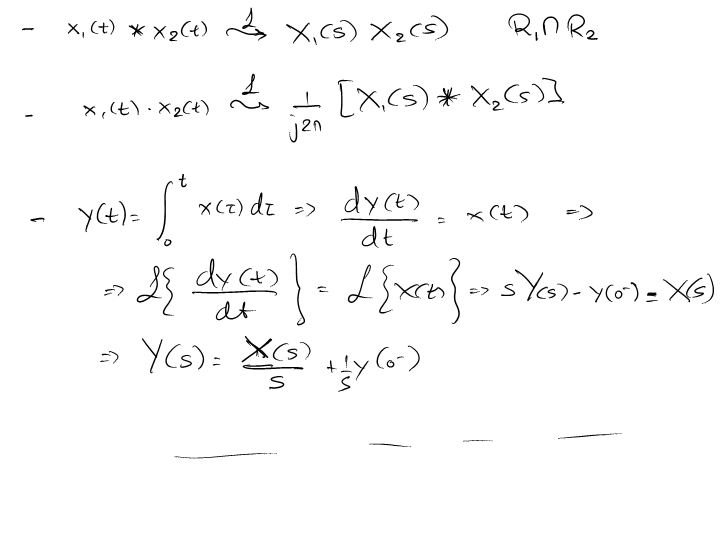 - x₁(t) * x₂(t) ℒ⇝ X₁(s) X₂(s) R₁∩R₂
- x₁(t) · x₂(t) ℒ⇝ 1/j2π [X₁(s) * X₂(s)]
- y(t) = ∫₀ᵗ x(τ) dτ => dy(t)/dt = x(t) =>
=> ℒ{dy(t)/dt} = ℒ{x(t)} => sY(s) - y(0⁻) = X(s)
=> Y(s) = X(s)/s + 1/s y(0⁻)